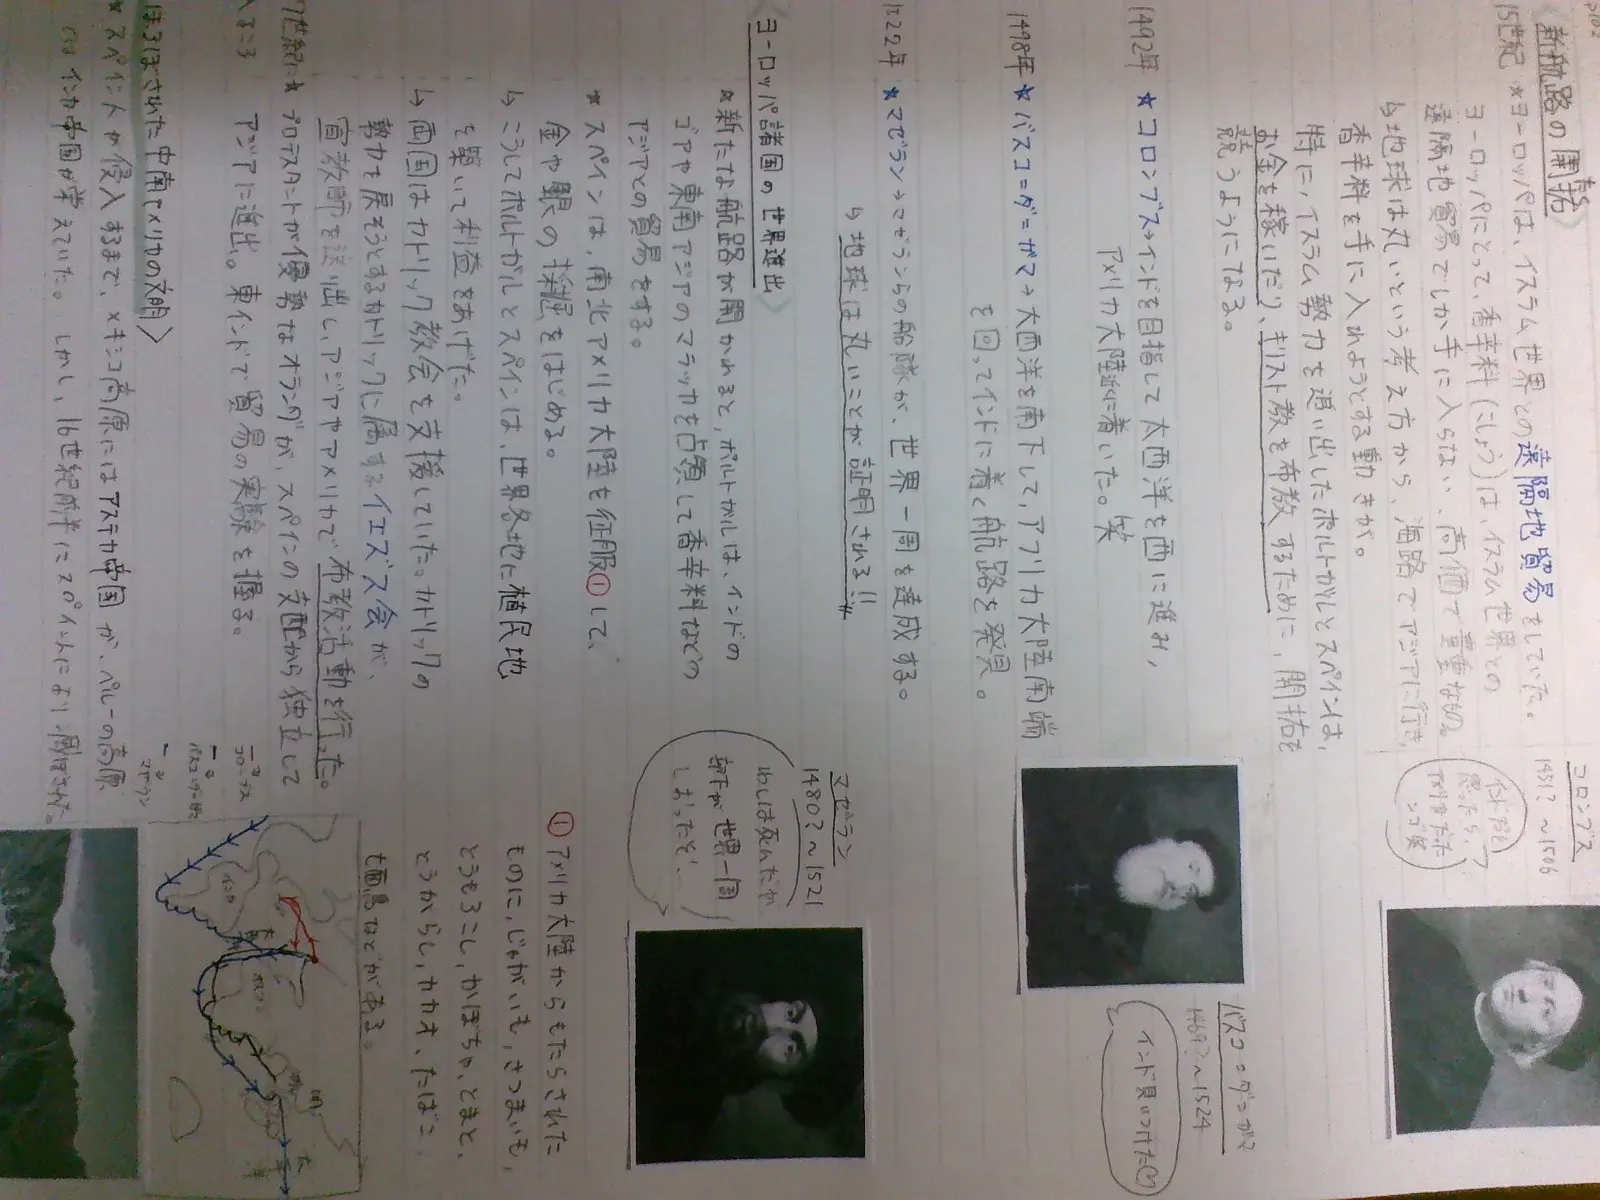 P102
〈新航路の開拓〉
15世紀 ★ヨーロッパは、イスラム世界との遠隔地貿易をしていた。
ヨーロッパにとって、香辛料(こしょう)は、イスラム世界との
遠隔地貿易でしか手に入らない、高価で貴重なもの。
↳地球は丸いという考え方から、海路でアジアに行き、
香辛料を手に入れようとする動きが。
特に、イスラム勢力を追い出したポルトガルとスペインは、
お金を稼いだり、キリスト教を布教するために、開拓を
競うようになる。
1492年 ★コロンブス→インドを目指して大西洋を西に進み、
アメリカ大陸近に着いた。笑
1498年 ★バスコ=ダ=ガマ→大西洋を南下して、アフリカ大陸南端
を回ってインドに着く航路を発見。
1522年 ★マゼラン→マゼランらの船隊が、世界一周を達成する。
↳地球は丸いことが証明される!!
〈ヨーロッパ諸国の世界進出〉
★新たな航路が開かれると、ポルトガルは、インドの
ゴアや東南アジアのマラッカを占領して香辛料などの
アジアとの貿易をする。
★スペインは、南北アメリカ大陸を征服①して、
金や銀の採掘をはじめる。
↳こうしてポルトガルとスペインは、世界各地に植民地
を築いて利益をあげた。
↳両国はカトリック教会を支援していた。カトリックの
勢力を戻そうとするカトリックに属するイエズス会が、
宣教師を送り出し、アジアやアメリカで布教活動を行った。
17世紀に★プロテスタントが優勢なオランダが、スペインの支配から独立して
入るころ アジアに進出。東インドで貿易の実験を握る。
ほろぼされた中南アメリカの文明〉
★スペイン人が侵入するまで、メキシコ高原にはアステカ帝国が、ペルーの高原
には インカ帝国が栄えていた。しかし、16世紀前半にスペイン人により滅ぼされた。
コロンブス
1451?～1506
インドだと
思ったら、
アメリカだった
バスコ=ダ=ガマ
1469?～1524
インド見つけた
マゼラン
1480?～1521
わしは死んだが
部下が世界一周
しおったぞ、
①アメリカ大陸からもたらされた
ものに、じゃがいも、さつまいも、
とうもろこし、かぼちゃ、とまと、
とうがらし、カカオ、たばこ、
七面鳥などがある。
コロンブス
バスコ=ダ=ガマ
マゼラン
インド